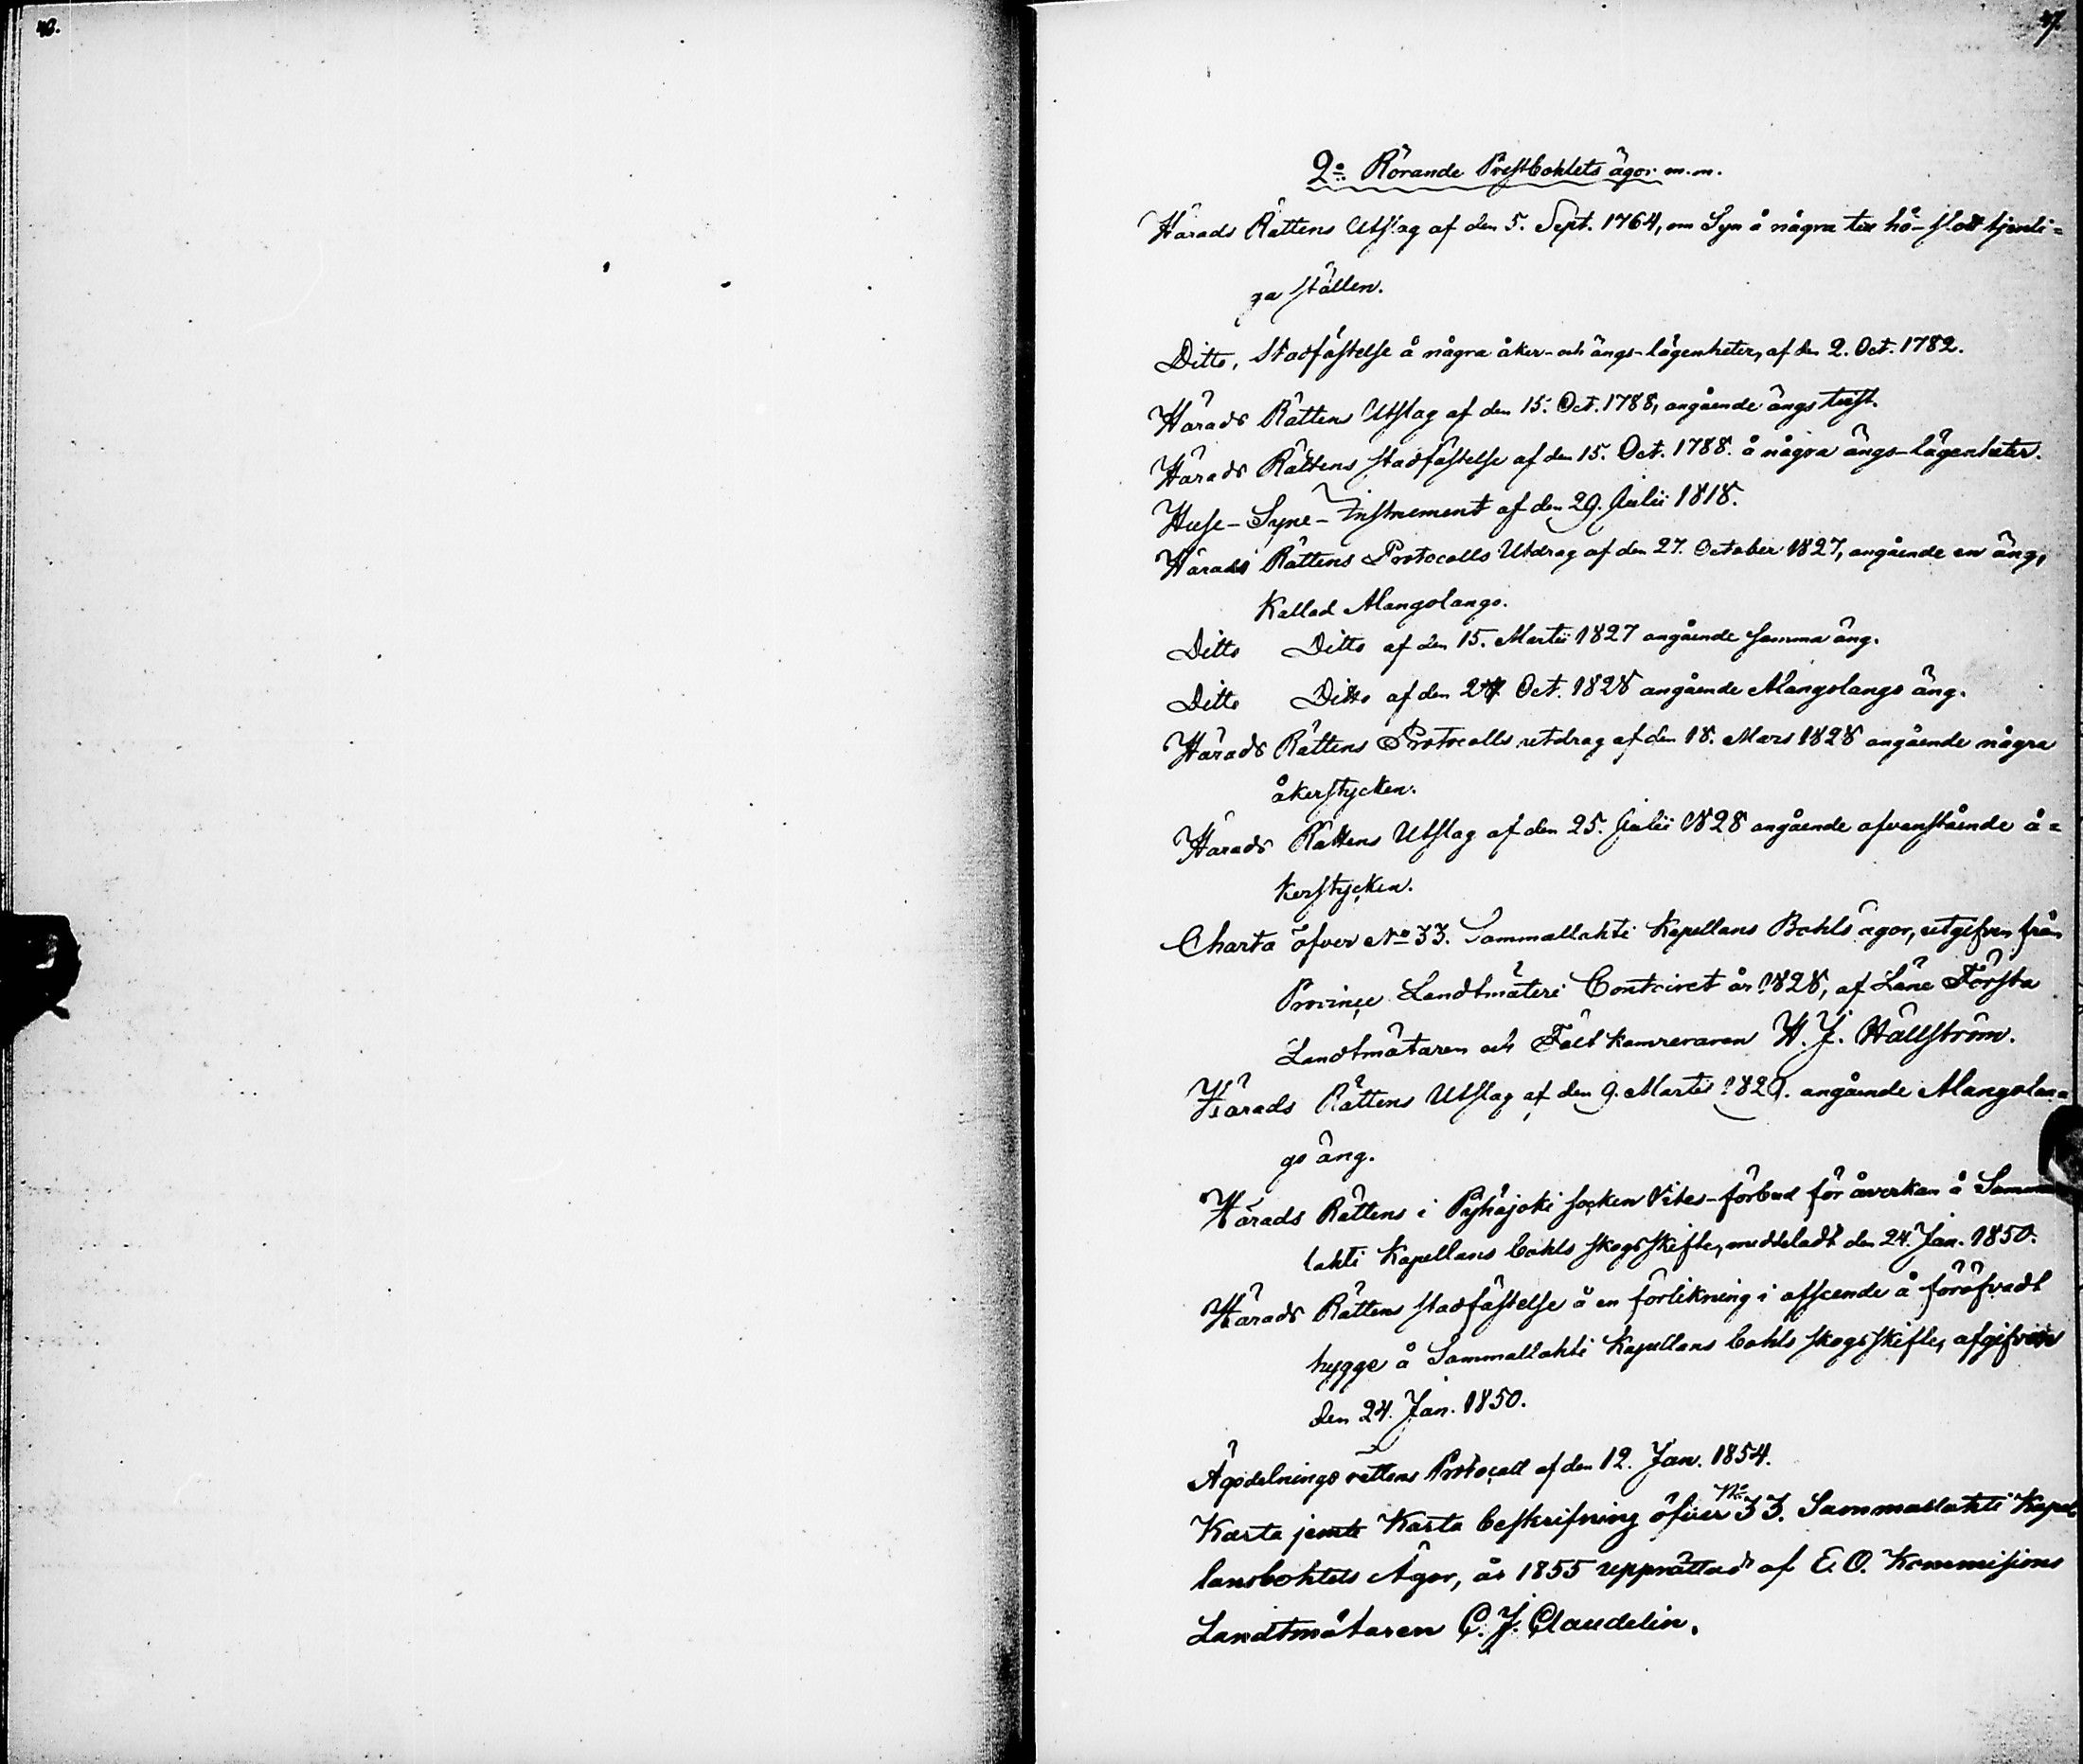 47.
2:o Rörande Prestbohlets ägor m.m.
Härads Rättens Utslag af den 5. Sept. 1764, om Syn å några till hö-slott tjenli=
ga ställen.
Ditto, Stadfästelse å några åker- och ängs-lägenheter, af den 2. Oct. 1782.
Härads Rättens Utslag af den 15. Oct. 1788, angående ängs tvist.
Härads Rättens stadfästelse af den 15. Oct. 1788. å några ängs-lägenheter.
Huse-Syne-Instrument af den 29. Julii 1818.
Härads Rättens Protocolls Utdrag af den 27. October 1827, angående en äng,
Kallad Alangolango.
Ditto Ditto af den 15. Martii 1827 angående samma äng.
Ditto Ditto af den Oct. 1828 angående Alangolango äng.
Härads Rättens Protocolls utdrag af den 18. Mars 1828 angående några
åkerstycken.
Härads Rättens Utslag af den 25. Julii 1828 angående ofvanstående å=
kerstycken.
Charta öfver No 33. Sammallahti Kapellans Bohls ägor, utgifven från
Province Landtmäteri Contoiret år 1828, af Läne Första
Landtmätaren och Fält kamreraren H. J. Hällström.
Härads Rättens Utslag af den 9. Martii 1829. angående Alangolan=
go äng.
Härads Rättens i Pyhäjoki socken Vites-förbud för åverkan å Sammal
lahti Kapellans bohls skogsskifte, meddeladt den 24. Jan. 1850.
Härads Rättens stadfästelse å en förlikning i afseende å föröfvadt
hygge å Sammallahti Kapellans bohls skogsskifte, afgifven
den 24. Jan. 1850.
Ägodelnings rättens Protocoll af den 12. Jan. 1854.
Karta jemte Karta beskrifning öfver No 33. Sammallahti Kapel
lansbohlets Ägor, år 1855 upprättad af E. O. Kommissions
Landtmätaren C. J. Claudelin.